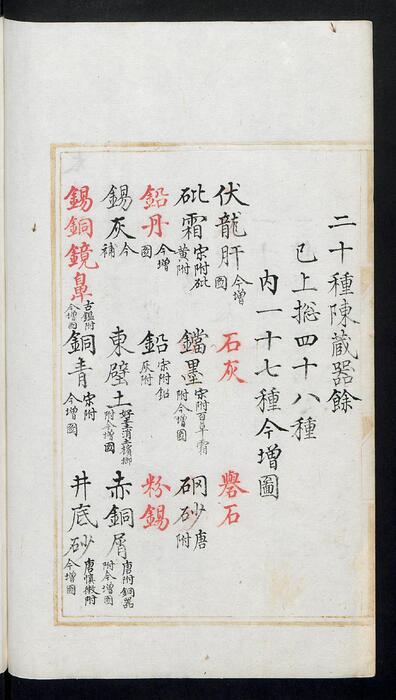 二十種陳藏器餘
已上捴四十八種
內一十七種今增圖
伏龍肝今增圖 石灰 礜石
砒霜宋附砒黃附 鐺墨宋附百草霜附今增圖 砂唐附
鉛丹今增圖 鉛宋附鉛灰附 粉錫
錫灰今補 東壁土土消土檳榔附今增圖 赤銅屑唐附銅器附今增圖
錫銅鏡鼻古鑑附今增圖 銅青宋附今增圖 井底砂唐慎微附今增圖